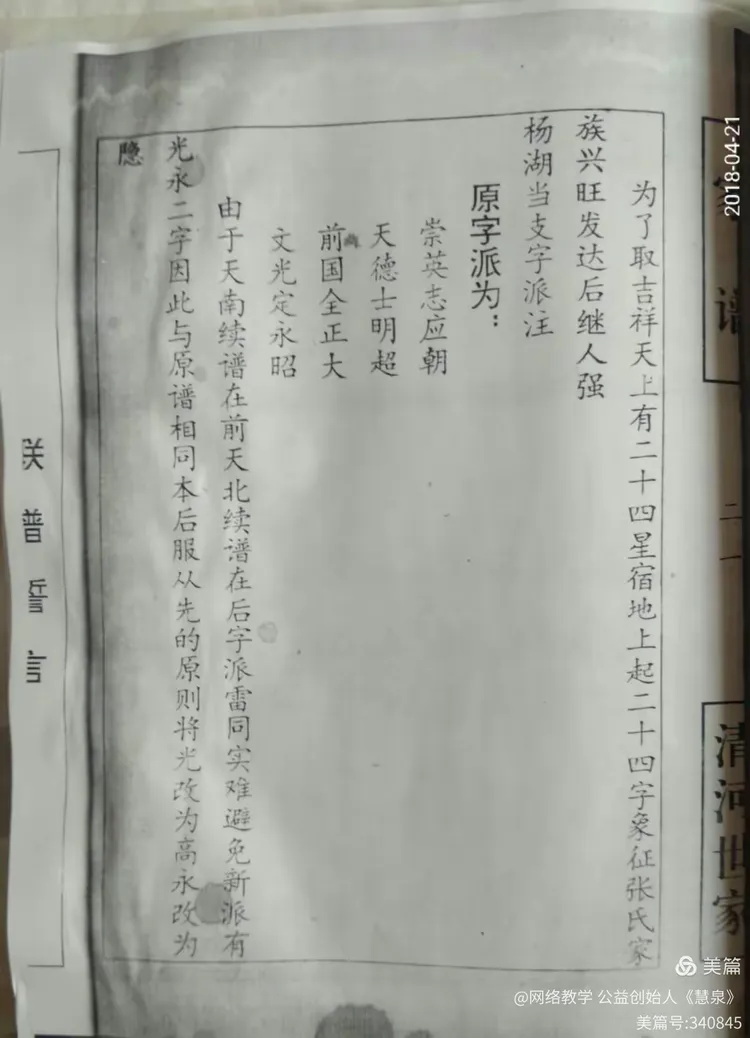 为了取吉祥天上有二十四星宿地上起二十四字象征张氏家
族兴旺发达后继人强
杨湖当支字派注
原字派为：
崇英志应朝
天德士明超
前国全正大
文光定永昭
由于天南续谱在前天北续谱在后字派雷同实难避免新派有
光永二字因此与原谱相同本后服从先的原则将光改为高永改为
隐
联普誉言
谱
二一
清河世家
2018-04-21
美篇
@网络教学 公益创始人《慧泉》
美篇号:340845